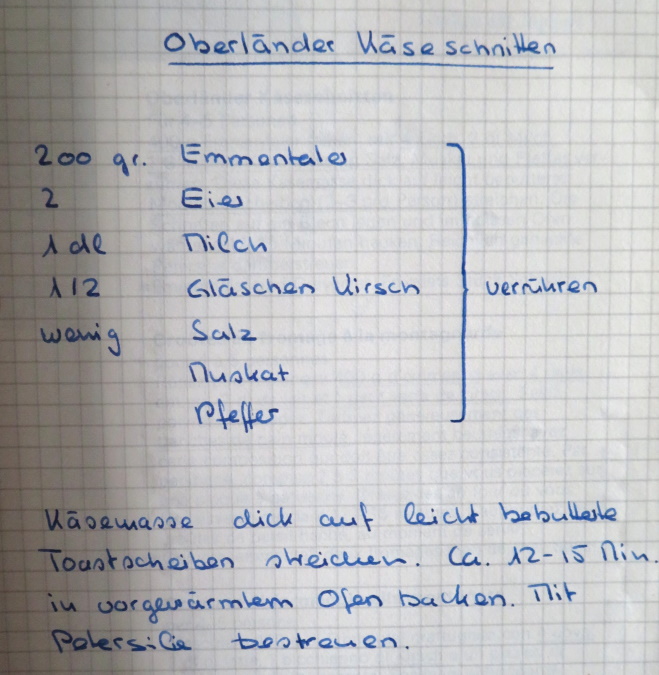 Oberländer Käseschnitten
200 gr. Emmentaler
2 Eier
1 dl Milch
1/2 Gläschen Kirsch verrühren
wenig Salz
Muskat
Pfeffer
Käsemasse dick auf leicht bebutterte
Toastscheiben streichen. Ca. 12-15 Min.
in vorgewärmtem Ofen backen. Mit
Petersilie bestreuen.